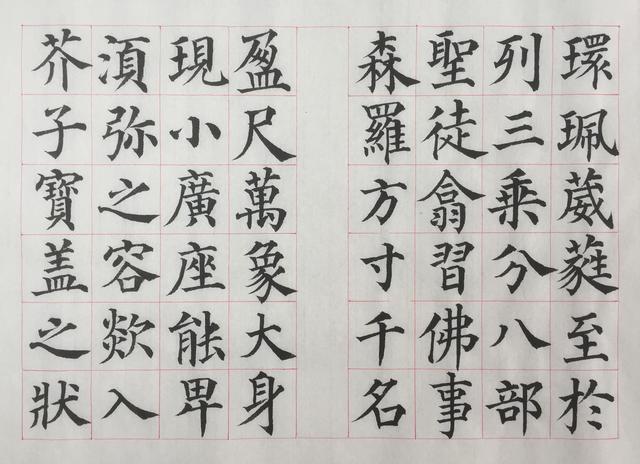 環珮葳蕤至於
列三乘分八部
聖徒翕習佛事
森羅方寸千名
盈尺萬象大身
現小廣座能卑
湏弥之容欻入
芥子寶盖之狀